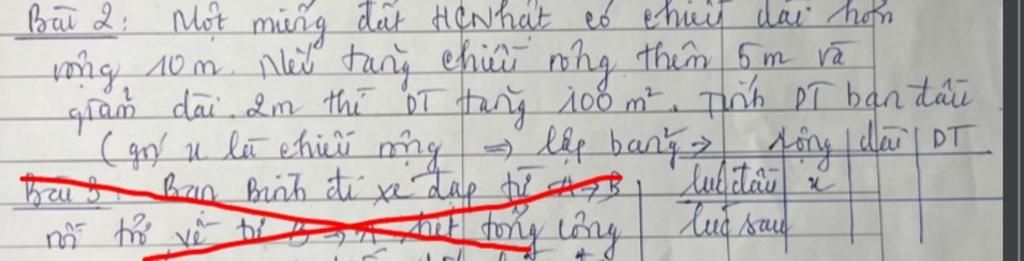 Bài 2: Một miếng đất HCNhật có chiều dài hơn
rộng 10m. Nếu tăng chiều rộng thêm 5m và
giảm dài 2m thì DT tăng 100m². Tính DT ban đầu
(gọi x là chiều rộng ⇒ lập bảng → rộng | dài | DT
Bài 3: Bạn Bình đi xe đạp từ A → B | lúc đầu | x
rồi trở về từ B → A hết tổng cộng | lúc sau